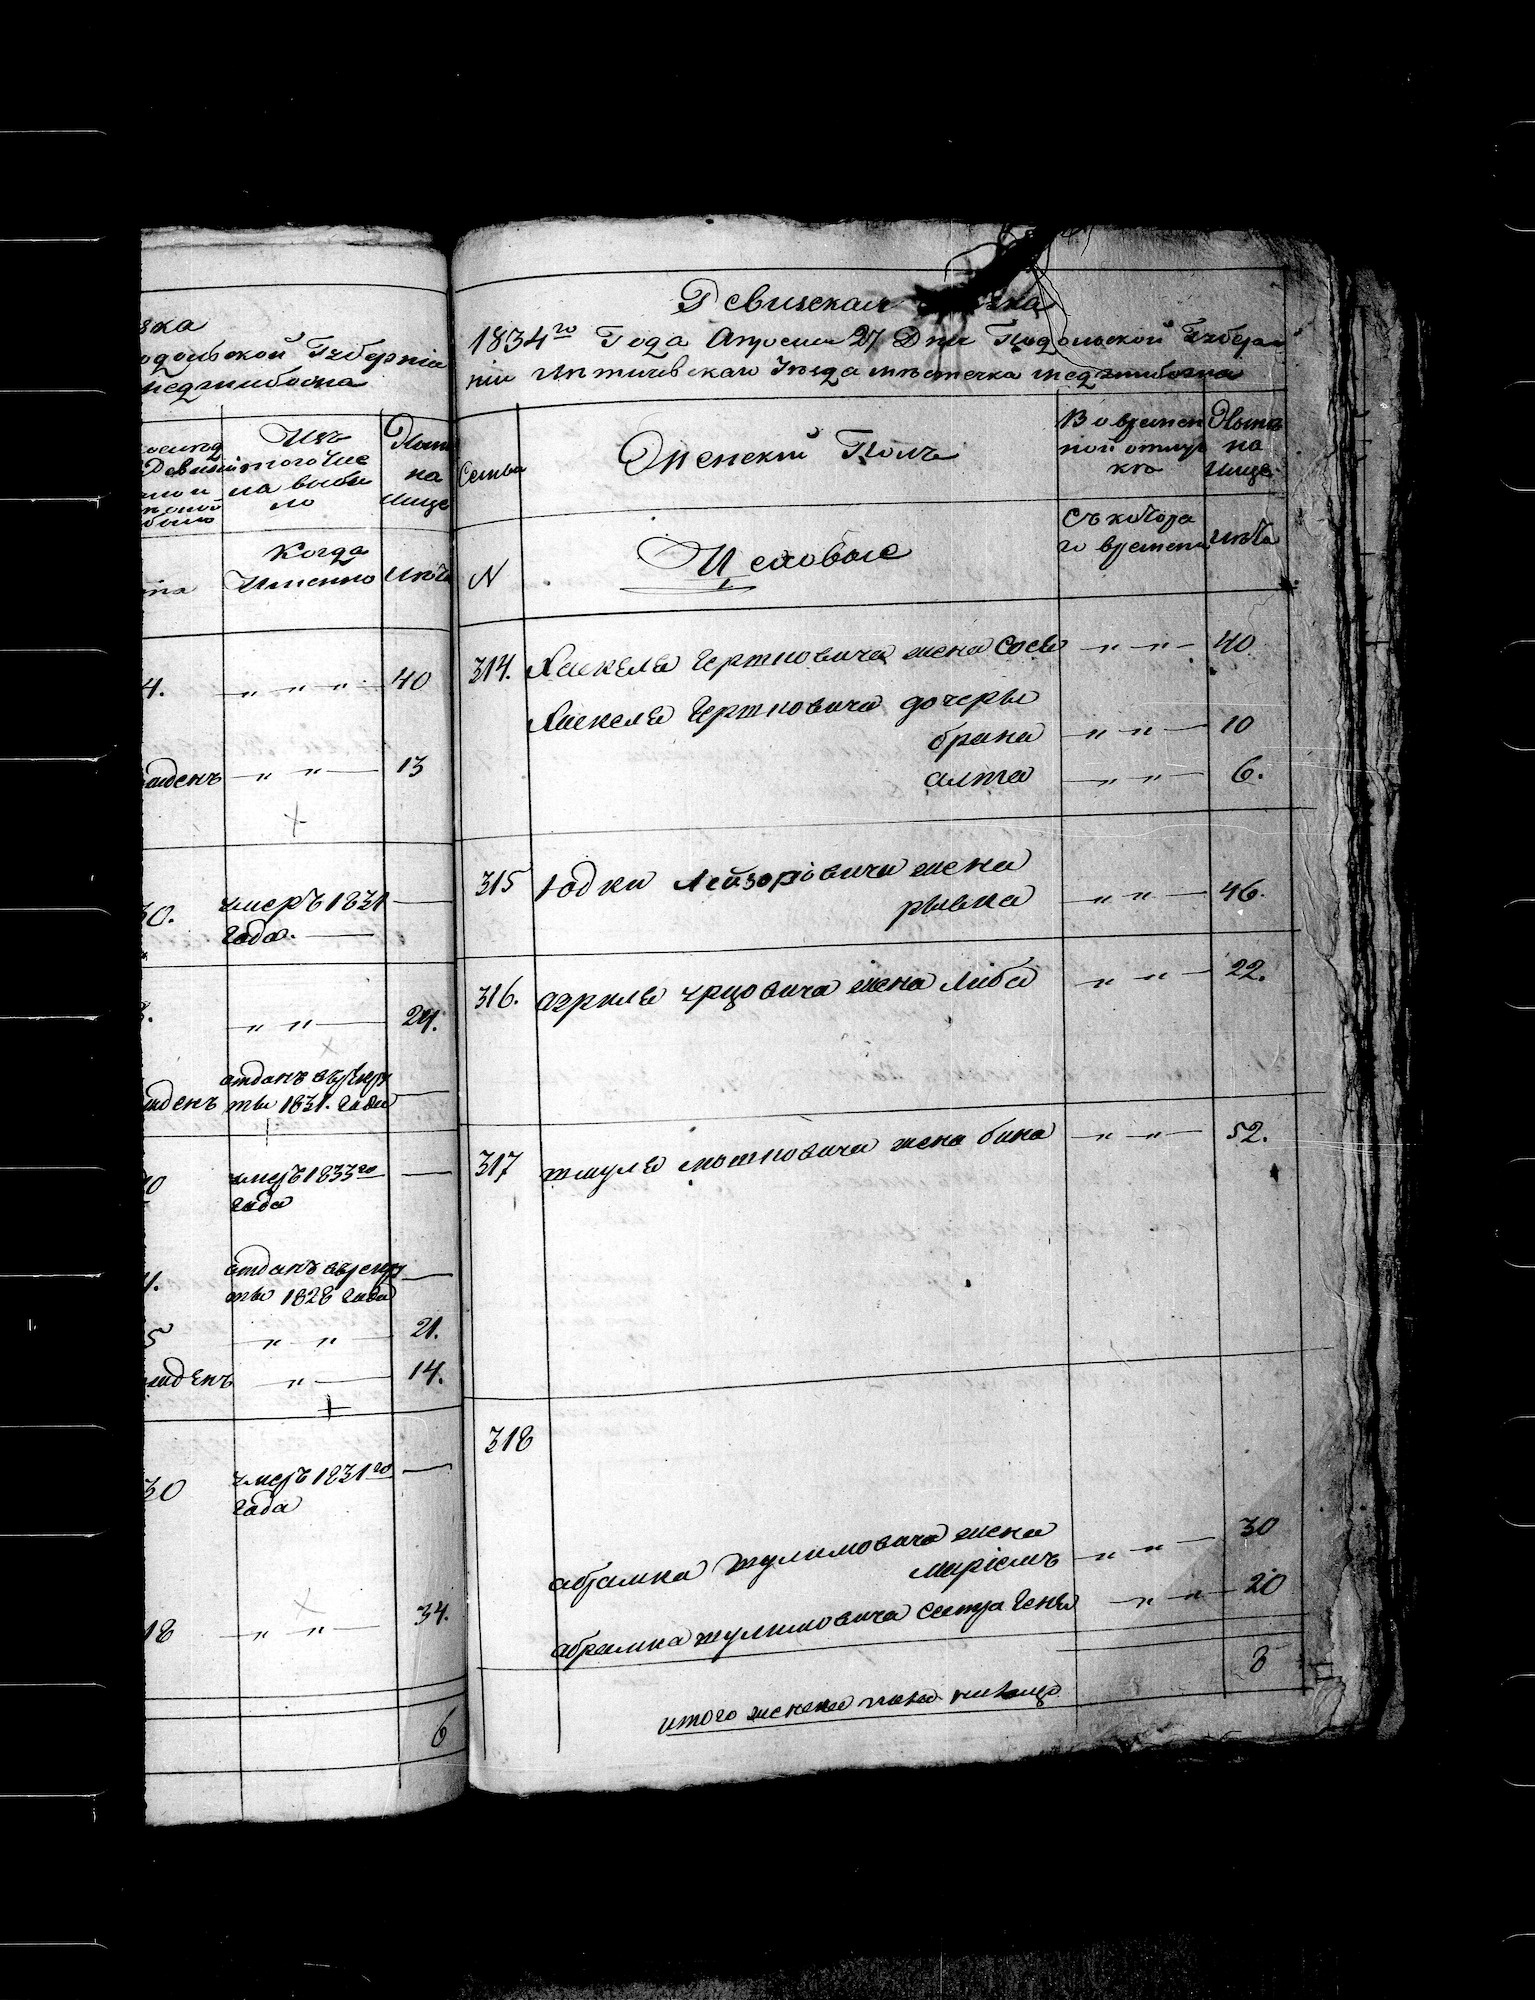 зка
одольской Губерніи
медзибожа
Изъ
того чис
ла выбы
ло
Ныне
на
лице
Когда
Именно
лета
4. 40
13
30. умеръ 1831
года.
24.
отданъ въ рекру
ты 1831. года
умеръ 1833го
года
отданъ въ рекру
ты 1828 года
5 21.
14.
30 умеръ 1831го
года
18 34.
6
Ревизская
1834го Года Апреля 27 Дня Подольской Губер
ніи Литичевскаго Уезда местечка Медзибожа
Семьи
Женскій Полъ
В о времен
ной отлуч
ке
Ныне
на
лице
N
Исковые
Съ котора
го времени
лета
314. Хаскеля Гершковича жена Сося 40
Хаскеля Гершковича дочеры
брана 10
алта 6.
315 Юдки Лейзоровича жена
рывка 46.
316. азриля урцовича жена Либа 22.
317 шмуля мошковича жена бина 52.
318
абрамка шулимовича жена
маріемъ 30
абрамка шулимовича сестра Геня 20
8
итого женска пола налицо